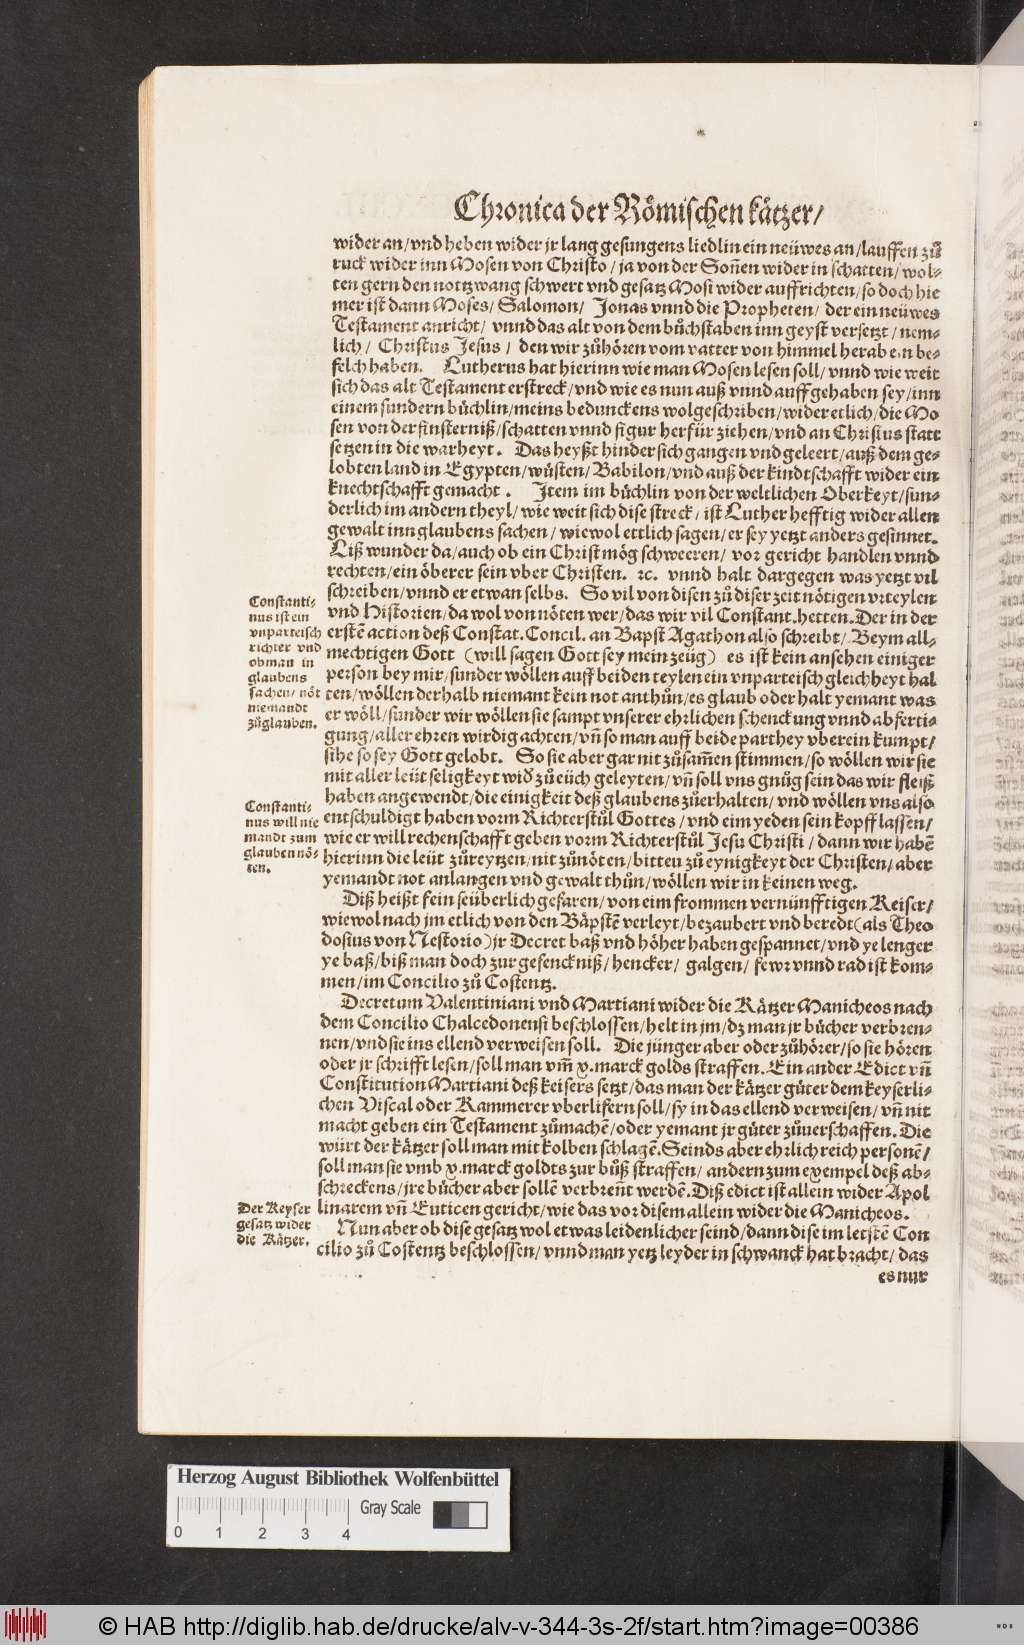 Chronica der Römischen kätzer/
wider an/vnd heben wider jr lang gesungens liedlin ein neüwes an/lauffen zů
ruck wider inn Mosen von Christo/ja von der Soñen wider in schatten/wol-
ten gern den nottzwang schwert vnd gesatz Mosi wider auffrichten/so doch hie
mer ist dann Moses/Salomon/ Jonas vnnd die Propheten/der ein neüwes
Testament anricht/ vnnd das alt von dem bůchstaben inn geyst versetzt/nem-
lich/ Christus Jesus/ den wir zůhören vom vatter von himmel herab ein be-
felch haben. Lutherus hat hierinn wie man Mosen lesen soll/vnnd wie weit
sich das alt Testament erstreck/vnd wie es nun auß vnnd auffgehaben sey/inn
einem sundern bůchlin/meins bedunckens wolgeschriben/wider etlich/die Mo
sen von der finsterniß/schatten vnnd figur herfür ziehen/vnd an Christus statt
setzen in die warheyt. Das heyßt hindersich gangen vnd geleert/auß dem ge-
lobten land in Egypten/wůsten/Babilon/vnd auß der kindtschafft wider ein
knechtschafft gemacht. Item im bůchlin von der weltlichen Oberkeyt/sun-
derlich im andern theyl/wie weit sich dise streck/ist Luther hefftig wider allen
gewalt inn glaubens sachen/wiewol ettlich sagen/er sey yetzt anders gesinnet.
Liß wunder da/auch ob ein Christ mög schweeren/ vor gericht handlen vnnd
rechten/ein öberer sein vber Christen. ꝛc. vnnd halt dargegen was yetzt vil
schreiben/vnnd er etwan selbs. So vil von disen zů diser zeit nötigen vrteylen
vnd Historien/da wol von nöten wer/das wir vil Constant.hetten. Der in der
erstē action deß Constat.Concil. an Bapst Agathon also schreibt/ Beym all-
mechtigen Gott (will sagen Gott sey mein zeüg) es ist kein ansehen einiger
person bey mir/sunder wöllen auff beiden teylen ein vnparteisch gleichheyt hal
ten/wöllen derhalb niemant kein not anthůn/es glaub oder halt yemant was
er wöll/sunder wir wöllen sie sampt vnserer ehrlichen schenckung vnnd abferti-
gung/aller ehren wirdig achten/vñ so man auff beide parthey vberein kumpt/
sihe so sey Gott gelobt. So sie aber gar nit zůsam̃en stimmen/so wöllen wir sie
mit aller leüt seligkeyt wid' zů eüch geleyten/vñ soll vns gnůg sein das wir fleiß
haben angewendt/die einigkeit deß glaubens zůerhalten/vnd wöllen vns also
entschuldigt haben vorm Richterstůl Gottes/vnd eim yeden sein kopff lassen/
wie er will rechenschafft geben vorm Richterstůl Jesu Christi/dann wir habē
hierinn die leüt zůreytzen/nit zůnöten/bitten zů eynigkeyt der Christen/aber
yemandt not anlangen vnd gewalt thůn/wöllen wir in keinen weg.
Diß heißt fein seüberlich gefaren/von eim frommen vernünfftigen Keiser/
wiewol nach jm etlich von den Bäpstē verleyt/bezaubert vnd beredt(als Theo
dosius von Nestorio)jr Decret baß vnd höher haben gespannet/vnd ye lenger
ye baß/biß man doch zur gefenckniß/hencker/ galgen/ fewr vnnd rad ist kom-
men/im Concilio zů Costentz.
Decretum Valentiniani vnd Martiani wider die Kätzer Manicheos nach
dem Concilio Chalcedonensi beschlossen/helt in jm/dz man jr bücher verbren-
nen/vnd sie ins ellend verweisen soll. Die jünger aber oder zůhörer/so sie hören
oder jr schrifft lesen/soll man vm̃ x.marck golds straffen. Ein ander Edict vñ
Constitution Martiani deß keisers setzt/das man der kätzer güter dem keyserli-
chen Viscal oder Kammerer vberlifern soll/sy in das ellend verweisen/vñ nit
macht geben ein Testament zůmachē/oder yemant jr güter zůuerschaffen. Die
würt der kätzer soll man mit kolben schlagē. Seinds aber ehrlich reich personē/
soll man sie vmb x.marck goldts zur bůß straffen/andern zum exempel deß ab-
schreckens/jre bücher aber sollē verbreñt werdē. Diß edict ist allein wider Apol
linarem vñ Euticen gericht/wie das vor disem allein wider die Manicheos.
Nun aber ob dise gesatz wol etwas leidenlicher seind/dann dise im letstē Con
cilio zů Costentz beschlossen/vnnd man yetz leyder in schwanck hat bracht/das
es nur
Constanti-
nus ist ein
vnparteisch
richter vnd
obman in
glaubens
sachen/nöt
niemandt
zůglauben.
Constanti-
nus will nie
mandt zum
glauben nö-
ten.
Der Keyser
gesatz wider
die Kätzer.
Herzog August Bibliothek Wolfenbüttel
Gray Scale
0 1 2 3 4
© HAB http://diglib.hab.de/drucke/alv-v-344-3s-2f/start.htm?image=00386